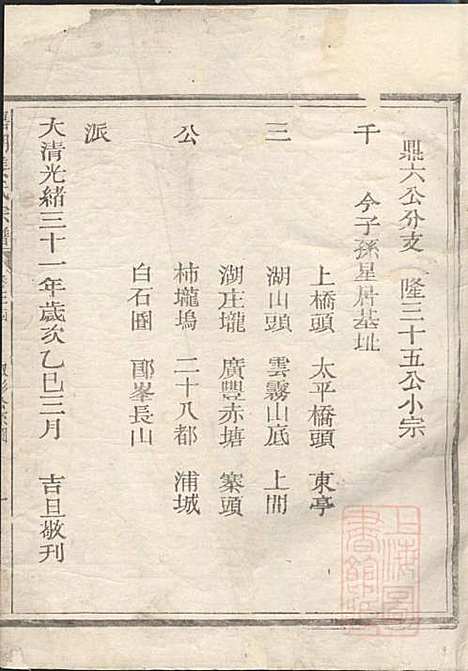 鼎六公分支　隆三十五公小宗
千　今子孫星居基址
上橋頭　太平橋頭　東亭
三　湖山頭　雲霧山底　上間
湖庄壠　廣豐赤塘　寨頭
公　柿壠塢　二十八都　浦城
白石囿　郎峯長山
派
大清光緒三十一年歲次乙巳三月　吉旦敬刊
上海圖書館藏